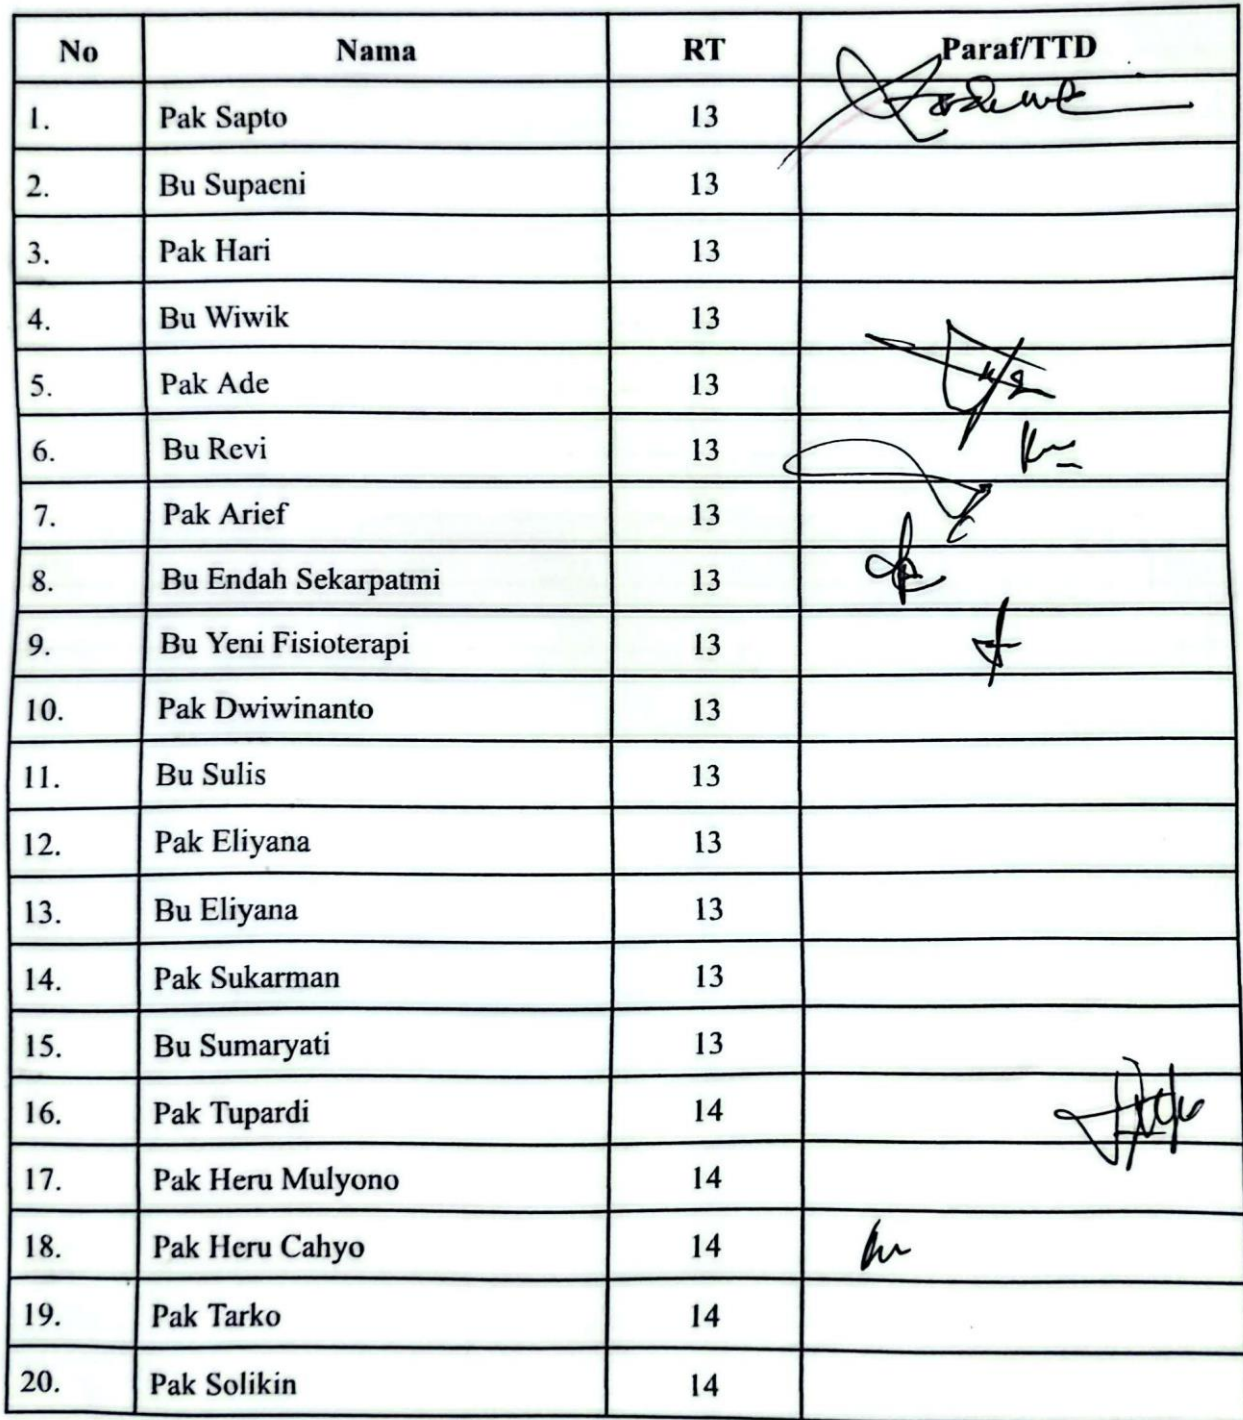 No Nama RT Paraf/TTD
1. Pak Sapto 13
2. Bu Supaeni 13
3. Pak Hari 13
4. Bu Wiwik 13
5. Pak Ade 13
6. Bu Revi 13
7. Pak Arief 13
8. Bu Endah Sekarpatmi 13
9. Bu Yeni Fisioterapi 13
10. Pak Dwiwinanto 13
11. Bu Sulis 13
12. Pak Eliyana 13
13. Bu Eliyana 13
14. Pak Sukarman 13
15. Bu Sumaryati 13
16. Pak Tupardi 14
17. Pak Heru Mulyono 14
18. Pak Heru Cahyo 14
19. Pak Tarko 14
20. Pak Solikin 14